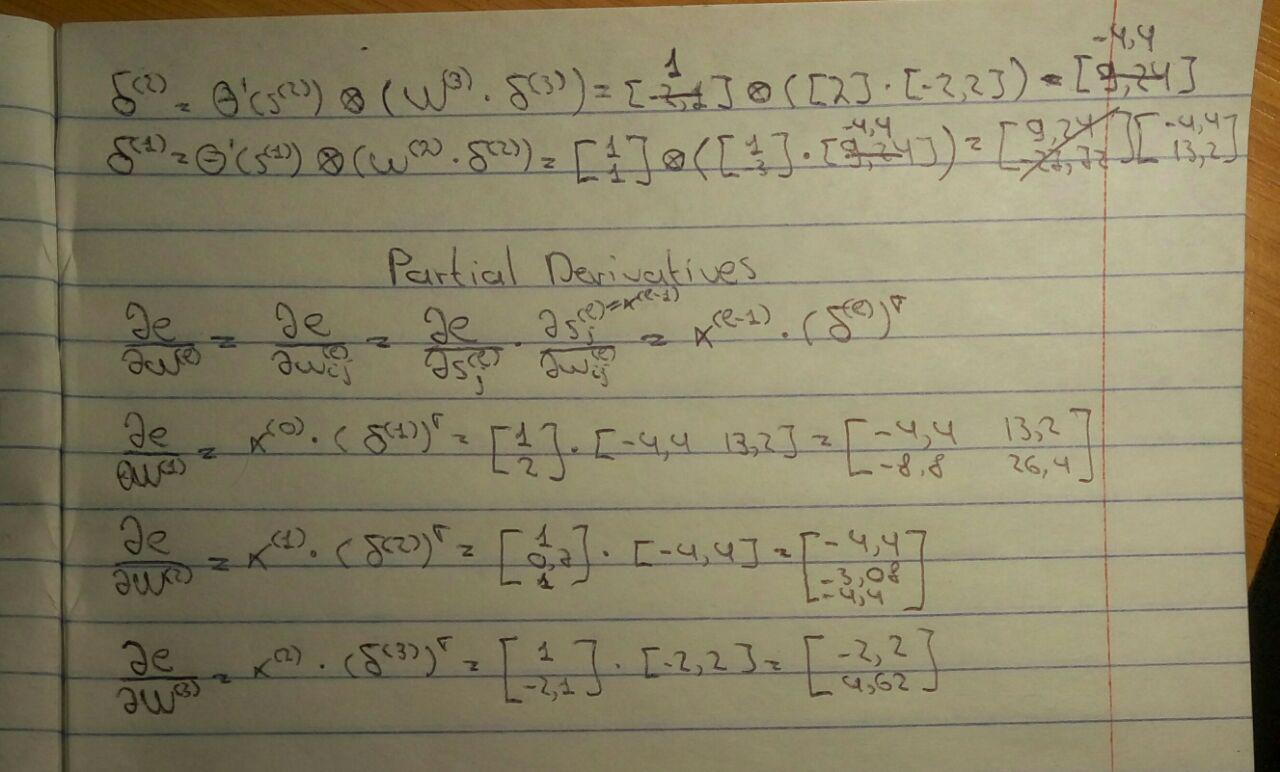 δ⁽²⁾ = Θ'(s⁽²⁾) ⊗ (W⁽³⁾ · δ⁽³⁾) = [1] ⊗ ([2] · [-2,2]) = [-4,4]
δ⁽¹⁾ = Θ'(s⁽¹⁾) ⊗ (W⁽²⁾ · δ⁽²⁾) = [1 1] ⊗ ([1 -3] · [-4,4]) = [-4,4 13,2]
Partial Derivatives
∂e/∂W⁽ℓ⁾ = ∂e/∂wᵢⱼ⁽ℓ⁾ = ∂e/∂sⱼ⁽ℓ⁾ · ∂sⱼ⁽ℓ⁾/∂wᵢⱼ⁽ℓ⁾ = x⁽ℓ⁻¹⁾ = x⁽ℓ⁻¹⁾ · (δ⁽ℓ⁾)ᵀ
∂e/∂W⁽¹⁾ = x⁽⁰⁾ · (δ⁽¹⁾)ᵀ = [1 2] · [-4,4 13,2] = [-4,4 13,2 -8,8 26,4]
∂e/∂W⁽²⁾ = x⁽¹⁾ · (δ⁽²⁾)ᵀ = [1 0,7 1] · [-4,4] = [-4,4 -3,08 -4,4]
∂e/∂W⁽³⁾ = x⁽²⁾ · (δ⁽³⁾)ᵀ = [1 -2,1] · [-2,2] = [-2,2 4,62]